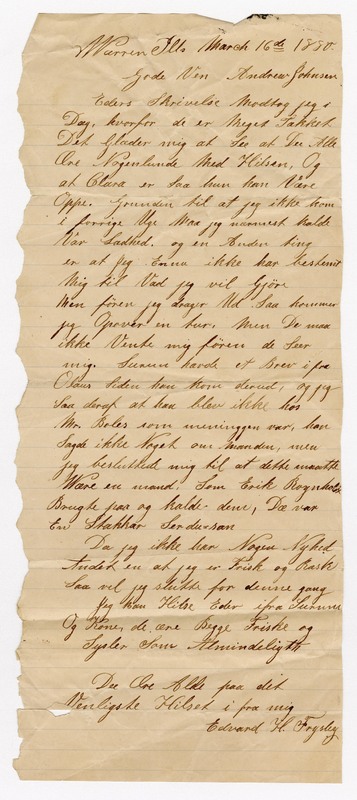 Warren Ills March 16de 1880.
Gode Ven Andrew Johnsen
Eders Skrivelse Modtog jeg i
Dag, hvorfor de er Meget Takket
Det Glader mig at See at Dee Alle
Ere Nogenlunde Med Hilsen, Og
at Clara er Saa hun kan Være
Oppe. Grunden til at jeg ikke kom
i forrige Uge Maa jeg nærmest kalde
Var Ladhed. og en Anden ting
er at Jeg Ennu ikke har bestemt
Mig til Vad jeg vil Gjöre
Men fören jeg drager Ud Saa kommer
jeg Opover en tur, Men De maa
ikke Vente mig fören de Seer
mig. havde et Brev i fra
Siden han kom derud, og jeg
Saa deraf at han blev ikke hos
Mr. Boles som meningen var, han
Sagde ikke Noget om Manden, men
jeg besluttede mig til at dette maatte
Være en mand, Som Erik
Brugte paa og kalde dem, Da var
En Stakkar
Da jeg ikke har Nogen Nyhed
Andet en at jeg er Frisk og Rask
Saa vil jeg slutte for denne gang
Jeg kan Hilse Eder ifra
Og Kone, de ere Begge Friske og
Sysler Som
Dee Ere Alde paa dit
Venligste Hilset i fra mig
Edvard H.